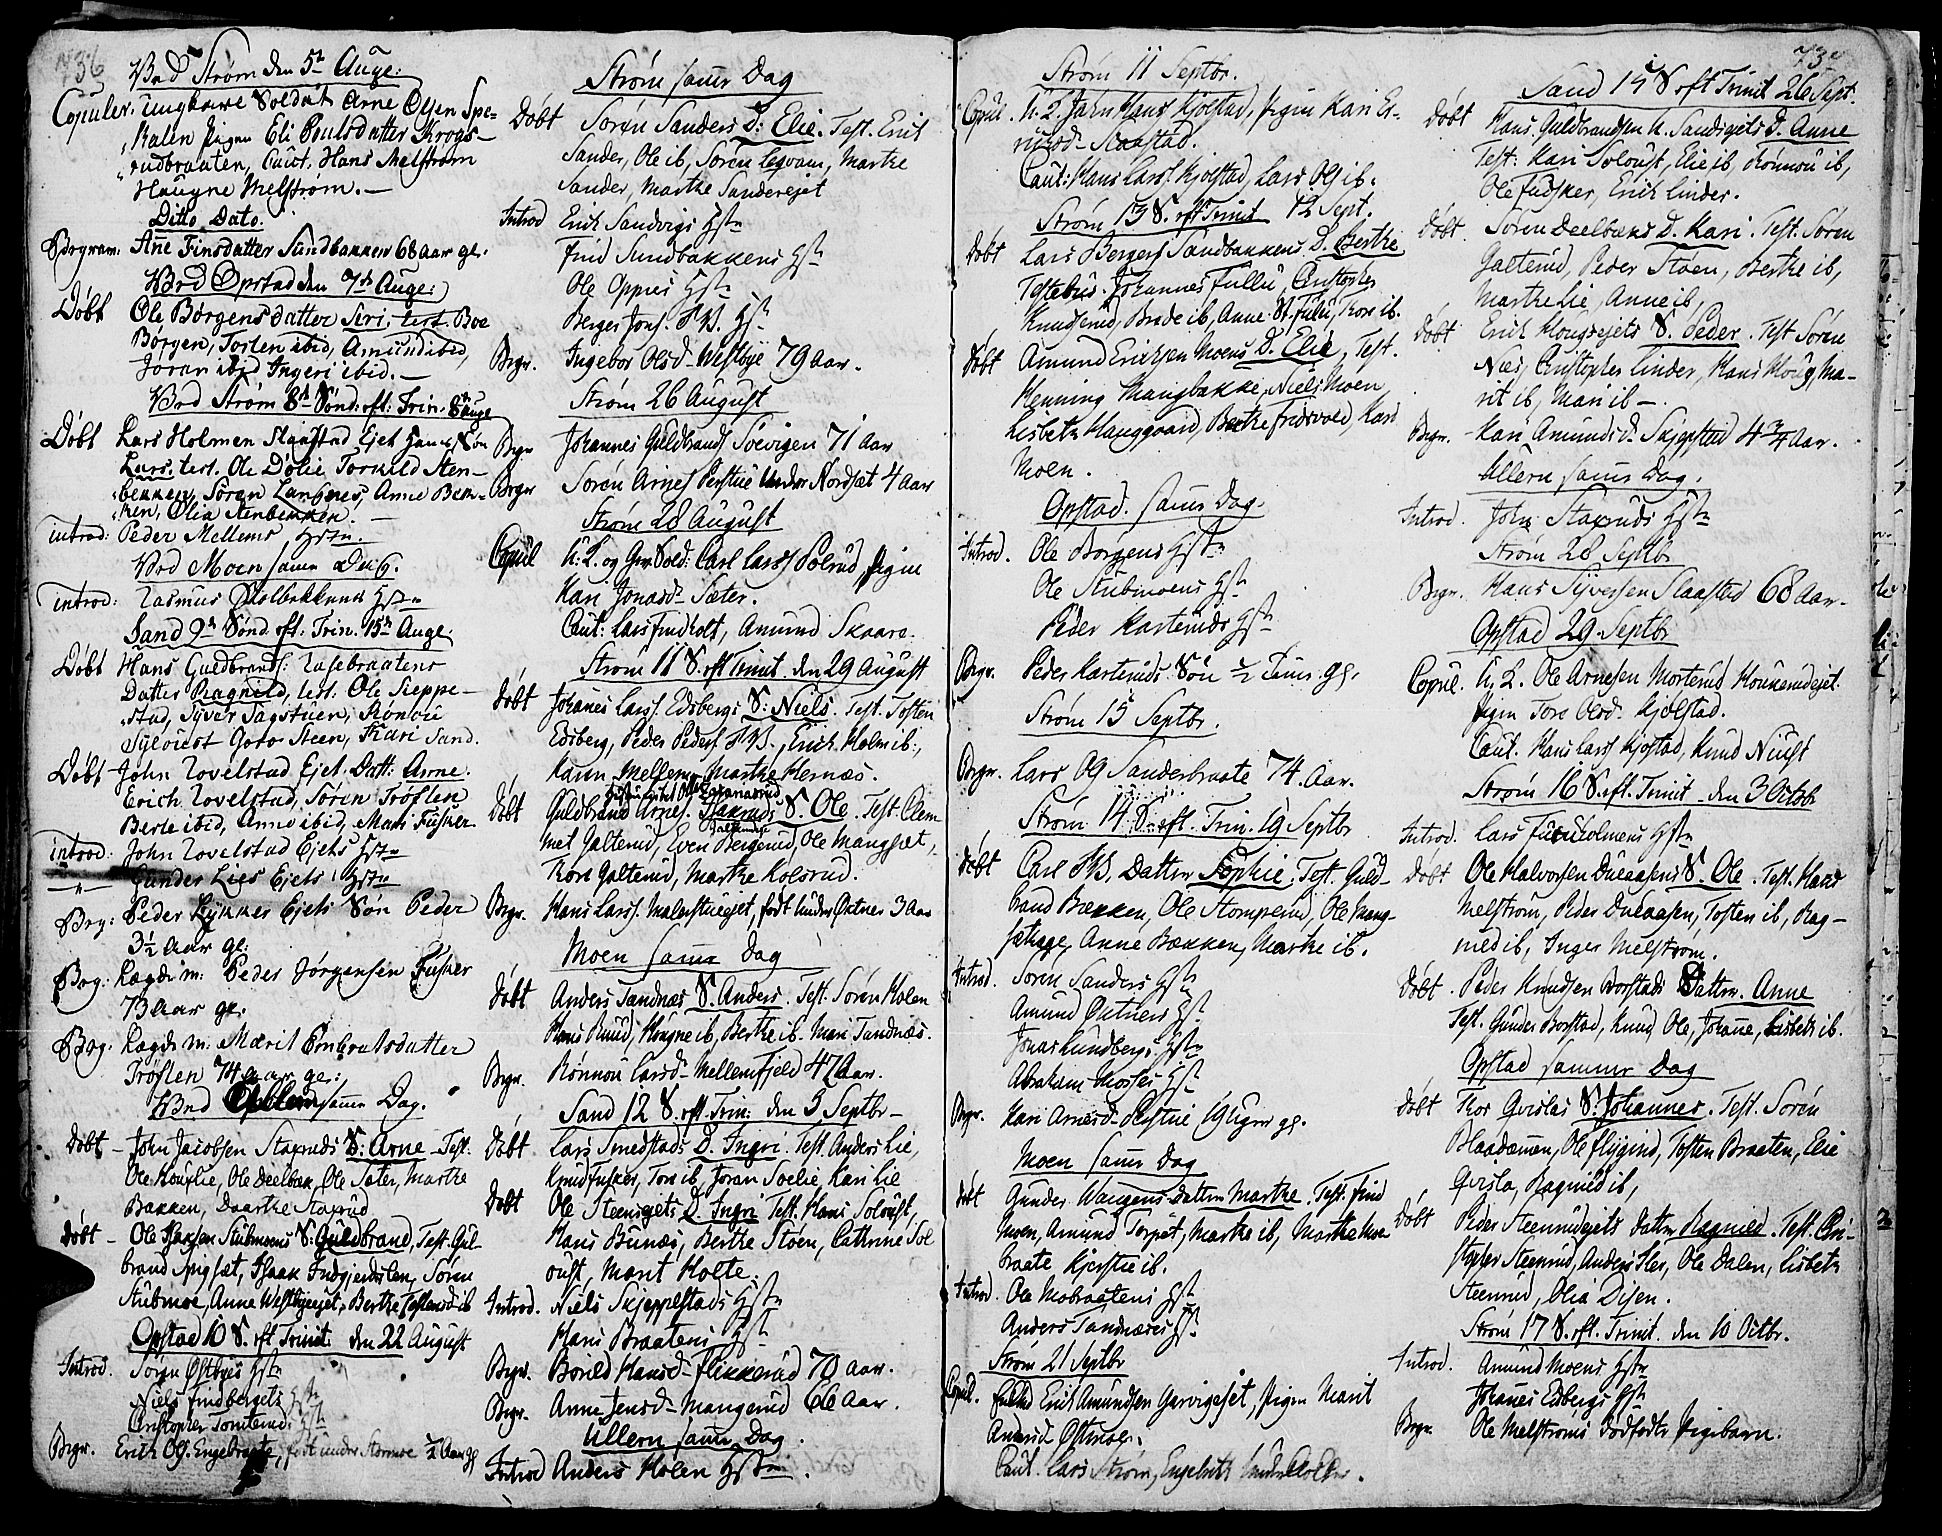 736
Ved Strøm den 5te Augs:
Copuler. Ungkarl Soldat Arne Olsen Spe-
kalen Pigen Eli Poulsdatter Krogs-
rudbraaten, Caut: Hans Melstrøm
Haugne Melstrøm. —
Ditto Dato.
Anne Finsdatter Sundbakken 68 aar gl.
Ved Opstad den 7de Augs:
Døbt Ole Børgens datter Siri, test. Boe
Børgen, Tosten ibid, Amund ibid,
Joran ibid Ingeri ibid. —
Ved Strøm 8de Sønd: eft: Trin. 8de Augs
Døbt Lars Holmen Slaastad Ejet hans Søn
Lars, test. Ole Dølie Torkild Sten-
bekken, Søren Langnes, Anne Bek-
ken, Olia Stenbekken. —
introd: Peder Mellems Hstr.
Ved Moen samme Dag.
introd: Rasmus Hstr
Sand 9de Sønd. eft: Trin. 15de Augs.
Døbt Hans Guldbrands: Aasebraatens
Datter Ragnild, test. Ole Sieppe-
stad, Syver Sagstuen, Rønnou
Steen, Kari Sand.
Døbt John Rovelstad Ejet. Datt: Anne.
Erich Rovelstad, Søren Trøften
Berte ibid, Anne ibid, Mari Fusker
introd: John Rovelstad Ejets Hstr
—"— Gunder Lies Ejets Hstr
Bgr: Peder Lykkes Ejets Søn Peder
3½ aar gl:
Beg: Lægdsm: Peder Jørgensen Fusker
73 aar gl.
Beg: Lægds m: Marit Embretsdatter
Trøften 74 aar gl:
Ved Ullern samme Dag.
Døbt — John Jacobsen Staxruds S: Arne — Test.
Ole Houglie, Ole Deelbæk, Ole Sæter, Marthe
Bakken, Dorthe Staxrud
Døbt — Ole Stubmoens S: Guldbrand, Test. Gul-
brand Isaak Søren
Stubmoe, Anne Westbyeejet, Berthe ib
Opstad 10 S. eft Trinit. den 22 August
Introd. Søren Østbyes Hstr
Niels Findbergets Hstr
Christopher Tomteruds Hstr
Begr. Erich Og. Engebraate, født under Stormoe ¾ Aar gl
Strøm samme Dag
Døbt Søren Sanders D: Elie. Test. Erich
Sander, Ole ib, Søren Leqvam, Marthe
Sander, Marthe Sanderejet
Introd Erich Sandvigs Hstr
Find Sundbakkens Hstr
Ole Oppies Hstr
Berger Jons. P.W. Hstr
Begr. Ingebor Olsd. Westbye 79 aar.
Strøm 26 August
Begr Johannes Guldbrands Soevigen 71 aar
Begr Søren Arnes Perstue under Nordsæt 4 aar
Strøm 28 August
Copul U: K. og Gev. Sold: Carl Larss Polrud, Pigen
Kari Jonasd. Sæter.
Caut: Lars Findholt, Amund Skaare.
Strøm 11 S. eft Trinit. den 29 August
Døbt Johannes Larss. Edsbergs S: Niels. Test. Tosten
Edsberg, Peder Peders. P.W., Erich Holm ib:,
Karen Mellem, Marthe Hernæs.
Døbt Guldbrand Arnes. S. Ole. Test. Clem
met Galterud, Even Bergerud, Ole Mangset,
Kari Galterud, Marthe Kolsrud.
Begr. Hans Larss. Malerstueejet, født under Oxnes 3 Aar
Moen samme Dag
Døbt Anders Sandnæs S. Anders. Test. Søren Holen
Hans Ruud, Haugne ib, Berthe ib. Mari Sandnæs.
Begr. Rønnou Larsd. Mellemfjeld 47 Aar.
Sand 12 S. eft. Trin: den 5 Septbr —
Døbt Lars Smedstads D. Ingri. Test. Anders Lie,
Knud Fusker, Tore ib, Joran Soelie, Kari Lie
Døbt Ole Steensejets D. Ingri Test. Hans Soloust,
Hans Bunæs, Berthe Støen, Cathrine Sol
oust, Marit Holte.
Introd. Niels Skjeppelstads Hstr
Hans Braatens Hstr
Begr. Borild Hansd. Flikkerud 70 aar.
Begr. Anne Jensd. Mangerud 66 aar.
Ullern samme Dag.
Introd Anders Holen Hstr.
Strøm 11 Septbr.
Copul. U. K. John Hans. Kjølstad, Pigen Kari Er-
nesd. Slaastad.
Caut: Hans Larss. Kjølstad, Lars Ols ib.
Strøm 13 S. eft Trinit 12 Sept.
Døbt Lars Bergers. Sandbakkens D. Berthe
Testibus. Johannes Fullu, Christopher
Knudserud, Brede ib, Anne Fullu, Kari ib.
Døbt Amund Erichsen Moens D. Elie, Test.
Henning Mangbakke, Niels Moen
Lisbeth Hauggaard, Berthe Fridsvold, Kari
Moen.
Opstad. samme Dag.
Introd. Ole Børgens Hstr
Ole Stubmoens Hstr
Peder Karteruds Hstr
Begr. Peder Karteruds Søn ½ Time gl.
Strøm 15 Septbr.
Begr. Lars Og Sanderbraate 74 Aar.
Strøm 14 S. eft. Trin. 19 Septbr
Døbt Carl P.W. Datter Sophie. Test. Guld-
brand Bækken, Ole Stomperud, Ole Mang-
sethage, Anne Bækken, Marthe ib.
Introd. Søren Sanders Hstr
Amund Hstr
Jonas Lundbergs Hstr
Abraham Hstr
Begr. Kari Arnesd. Perstue 19 uger gl.
Moen samme Dag
Døbt Gunder Wangens Datter Marthe. Test. Find
Moen, Amund Torpet, Marthe ib, Marthe Moe-
braate Kjerstie ib.
Introd. Ole Mobraatens Hstr
Anders Sandnæses Hstr
Strøm 21 Septbr
Copul. Erich Amundsen Garvigejet, Pigen Marit
Amundsd Østmoe.
Caut. Lars Strøm, Engebreth
737
Sand 15 S. eft Trinit 26 Sept.
Døbt Hans Guldbrandsen U. Sandsejets D. Anne
Test: Kari Soloust, Elie ib, Rønnou ib,
Ole Fusker, Erich Linder.
Døbt. Søren Deelbæks D. Kari. Test. Søren
Galterud, Peder Støen, Berthe ib,
Marthe Lie, Anne ib,
Døbt Erich Hougsejets S. Peder. Test Søren
Nies, Christopher Linder, Hans Houg, Ma-
rit ib, Mari ib —.
Begr. Kari Amundsd. Skjepstad 4¾ Aar.
Ullern samme Dag.
Introd. John Staxruds Hstr
Strøm 28 Septbr
Begr. Hans Syversen Slaastad 68 Aar.
Opstad 29. Septbr
Copul. U. K. Ole Arnesen Morterud Houkerudejet.
Pigen Tore Olsd. Kjølstad.
Caut. Hans Larss Kjøstad, Knud Niust
Strøm 16 S. eft. Trinit. den 3 Octobr
Introd. Lars Furuholmens Hstr
Døbt Ole Halvorsen Dueaasens S. Ole. Test. Hans
Melstrøm, Peder Dueaasen, Tosten ib, Rag-
nild ib, Inger Melstrøm.
Døbt. Peder Knudsen Borstads Datter. Anne
Test. Gunder Borstad, Knud, Ole, Johanne, Lisbeth ib.
Opstad samme Dag
Døbt Tor Qvislas S: Johannes. Test. Søren
Blaadammen, Ole Flygind, Tosten Braaten, Elie
Qvisla, Ragnild ib,
Døbt Peder Steenrudejets Datter Ragnild. Test. Chri-
stopher Steenrud, Anders Iles, Ole Dalen, Lisbeth
Steenrud, Olia Disen.
Strøm 17 S. eft. Trinit. den 10 Octbr.
Introd. Amund Moens Hstr
Johannes Edsbergs Hstr
Begr. Ole Melstrøms dødfødte Pigebarn.